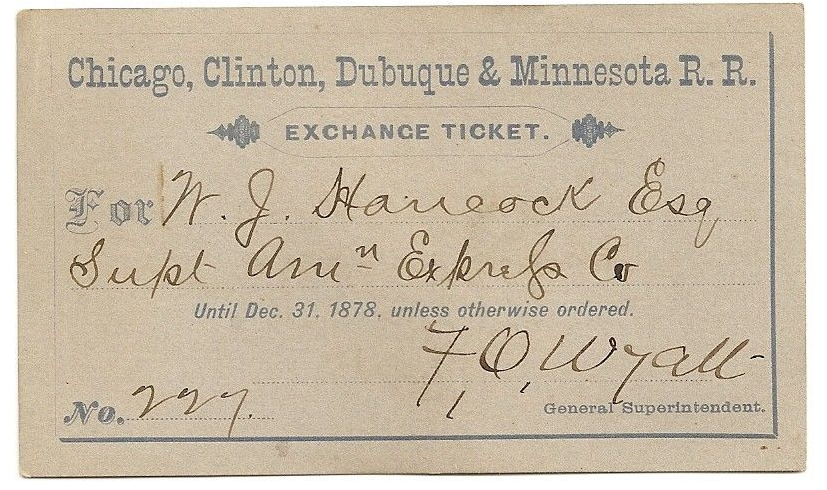 Chicago, Clinton, Dubuque & Minnesota R. R.
EXCHANGE TICKET.
For W. J. Hancock Esq
Supt Amn Express Co
Until Dec. 31. 1878. unless otherwise ordered.
F, O, Wyatt
No. 227.
General Superintendent.